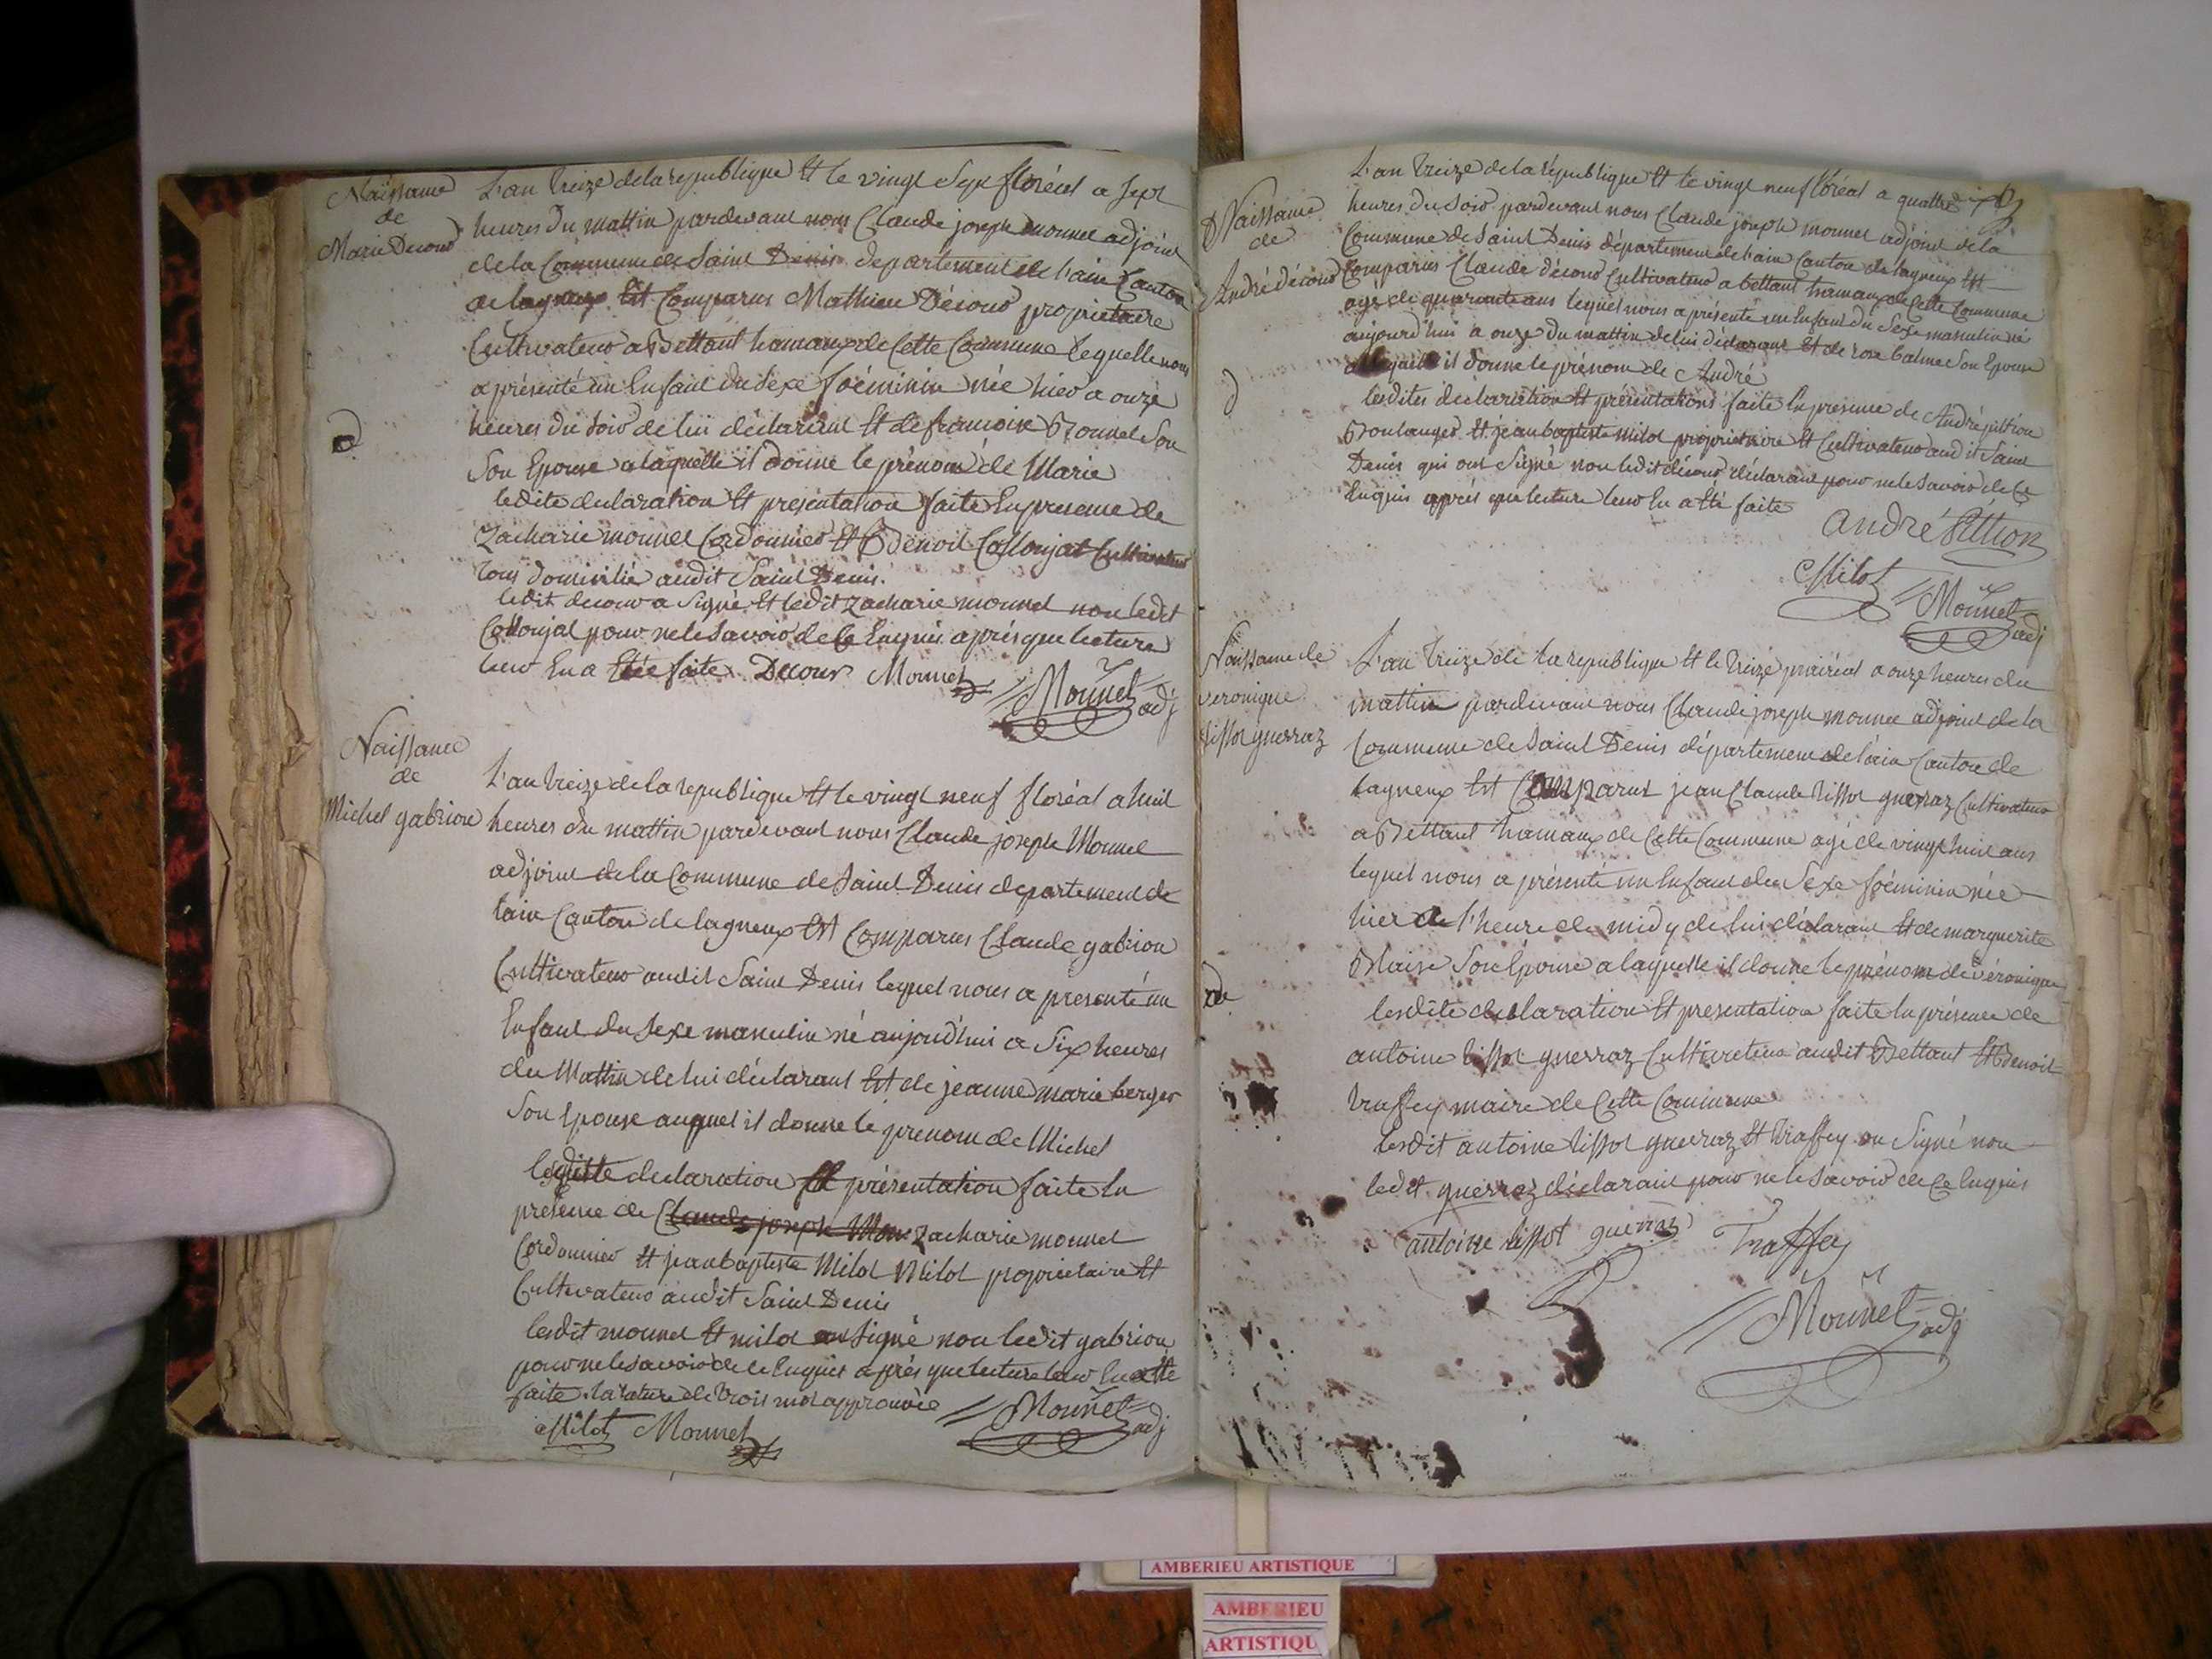 Naissance
de
Marie Decour
L'an treize de la republique Et le vingt Sept floréal a sept
heures du mattin pardevant nous Claude joseph monnet adjoint
de la Commune de Saint Denis departement de l'ain Canton
de lagneux Est Comparus Mathieu Décour propriétaire
Cultivateur a Bettant hamaux de Cette Commune lequelle nous
a présenté un Enfant du Sexe foéminin née hier a onze
heures du soir de lui déclarant Et de francoise Bonnet Son
Son Epouse a laquelle il donne le prénom de Marie
ledite declaration Et presentation faite En presence de
Zacharie monnet Cordonnier Et Benoit Collonjat Cultivateur
tous domicilié audit Saint Denis.
ledit decour a Signé Et ledit Zacharie monnet non ledit
Collonjat pour ne le savoir de Ce Enquis aprés que lecture
leur En a Etée faite Decour Monnet
Monnet adj
Naissance
de
Michel gabrion
L'an treize de la republique Et le vingt neuf floréal a huit
heures du mattin pardevant nous Claude joseph Monnet
adjoint de la Commune de Saint Denis departement de
lain Canton de lagneux Est Comparus Claude gabrion
Cultivateur audit Saint Denis lequel nous a presenté un
Enfant du Sexe masculin né aujourd'hui a Six heures
du Mattin de lui déclarant Et de jeanne marie berger
Son Epouse auquel il donne le prenom de Michel
lesditte declaration Et présentation faite En
presence de Claude joseph Mon Zacharie monnet
Cordonnier Et jean baptiste Milot Milot propriétaire Et
Cultivateur audit Saint Denis
lesdit monnet Et milot on Signé non ledit gabrion
pour ne le savoir de Ce Enquis aprés que lecture leur En a Eté
faite. la rature de trois mot approuvée
Milot Monnet
Monnet adj
L'an treize de la république Et le vingt neuf floréal a quattre
Naissance
de
André décour
heures du Soir pardevant nous Claude joseph monnet adjoint de la
Commune de Saint Denis département de l'ain Canton de lagneux Est
Comparus Claude décour Cultivateur a bettant hamaux de Cette Commune
agé de quarante ans lequel nous a présenté un Enfant du Sexe masculin né
aujourd'hui a onze du mattin de lui déclarant Et de rose balme Son Epouse
il donne le prénom de André
lesdites déclaration Et présentations faite En presence de André pittion
Boulanger Et jean baptiste milot propriétaire Et Cultivateur audit Saint
Denis qui ont Signé non ledit décour déclarant pour ne le savoir de Ce
Enquis aprés que lecture leur En a Eté faite
André Pithion
Milot
Monnet adj
Naissance de
veronique
tissot guerraz
L'an treize de la republique Et le treize prairéal a onze heures du
mattin pardevant nous Claude joseph monnet adjoint de la
Commune de Saint Denis département de l'ain Canton de
lagneux Est Comparut jean Claude tissot guerraz Cultivateur
a Bettant hamaux de Cette Commune agé de vingt huit ans
lequel nous a présenté un Enfant du Sexe foéminin née
hier de l'heure de midy de lui déclarant Et de marguerite
Blaise Son Epouse a laquelle il donne le prénom de véronique
lesdite déclaration Et presentation faite En présence de
antoine tissot guerraz Cultivateur audit Bettant Et Benoit
traffey maire de Cette Commune
lesdit antoine tissot guerraz Et traffey on Signé non
ledit guerraz déclarant pour ne le savoir de Ce Enquis
antoine tissot guerraz Traffey
Monnet adj
AMBERIEU ARTISTIQUE
AMBERIEU
ARTISTIQU